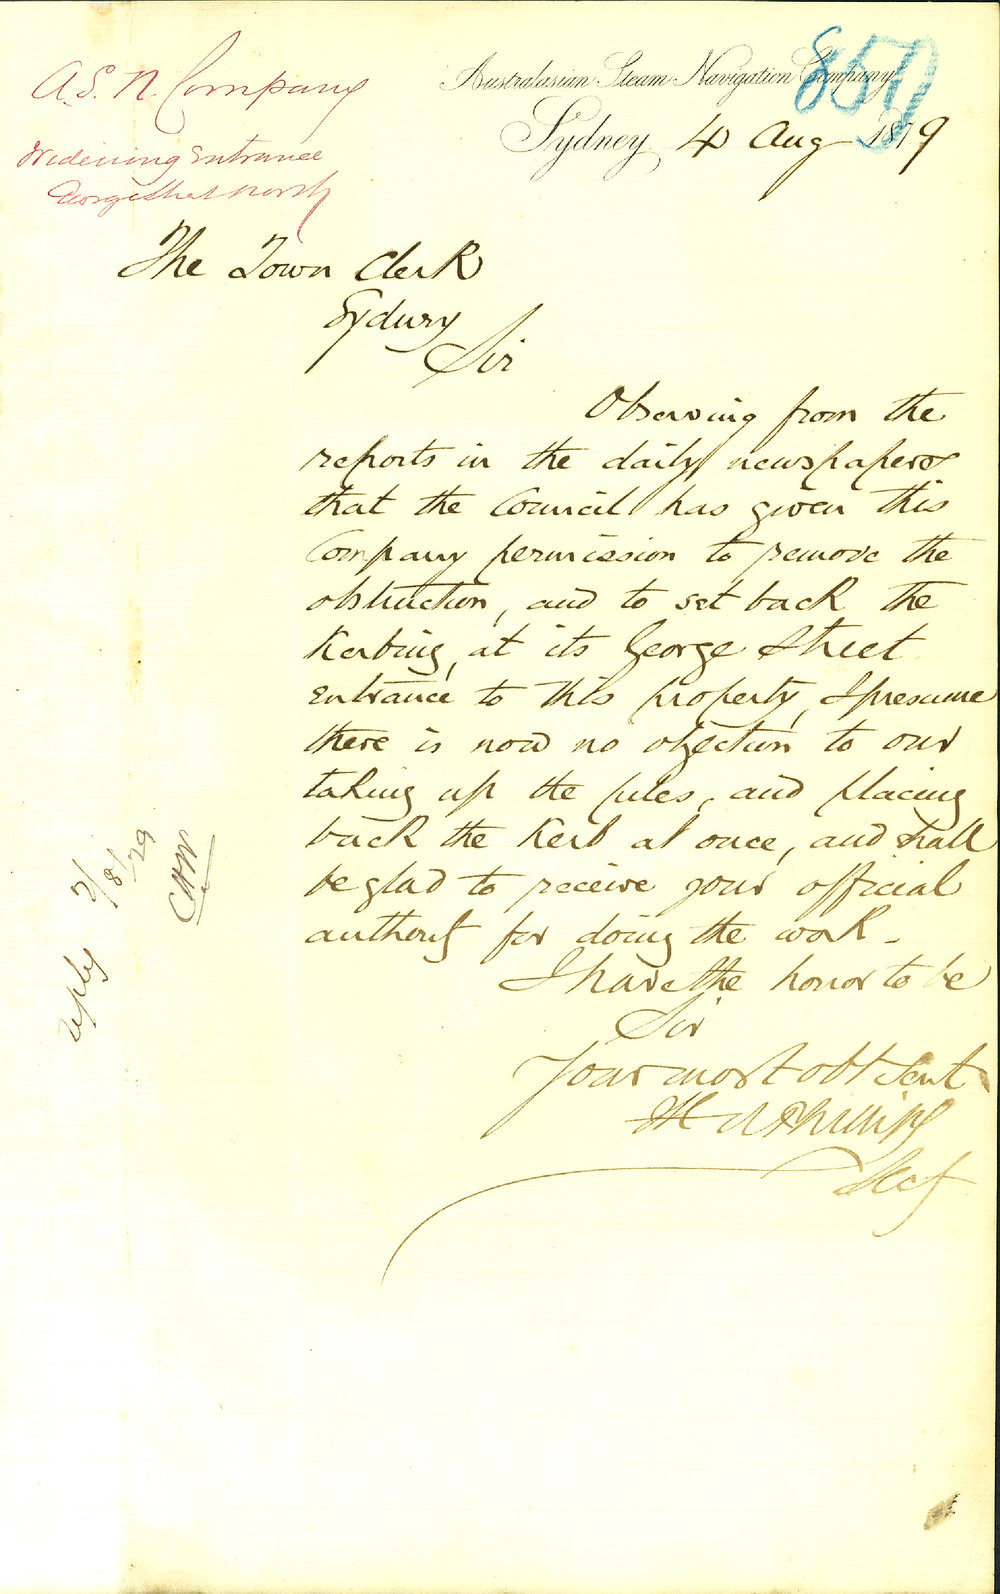 A.S.N. Company
Widening Entrance
George Street North
Australasian Steam Navigation Company
857
Sydney 4 Aug 1879
The Town Clerk
Sydney
Sir
Observing from the
reports in the daily newspapers
that the Council has given this
Company permission to remove the
obstruction, and to set back the
Kerbing, at its George Street
Entrance to this property, I presume
there is now no objection to our
taking up the piles, and placing
back the Kerb at once, and shall
be glad to receive your official
authority for doing the work -
I have the honor to be
Sir
Your most obt Servt
Phillips
Secy
reply 8/79